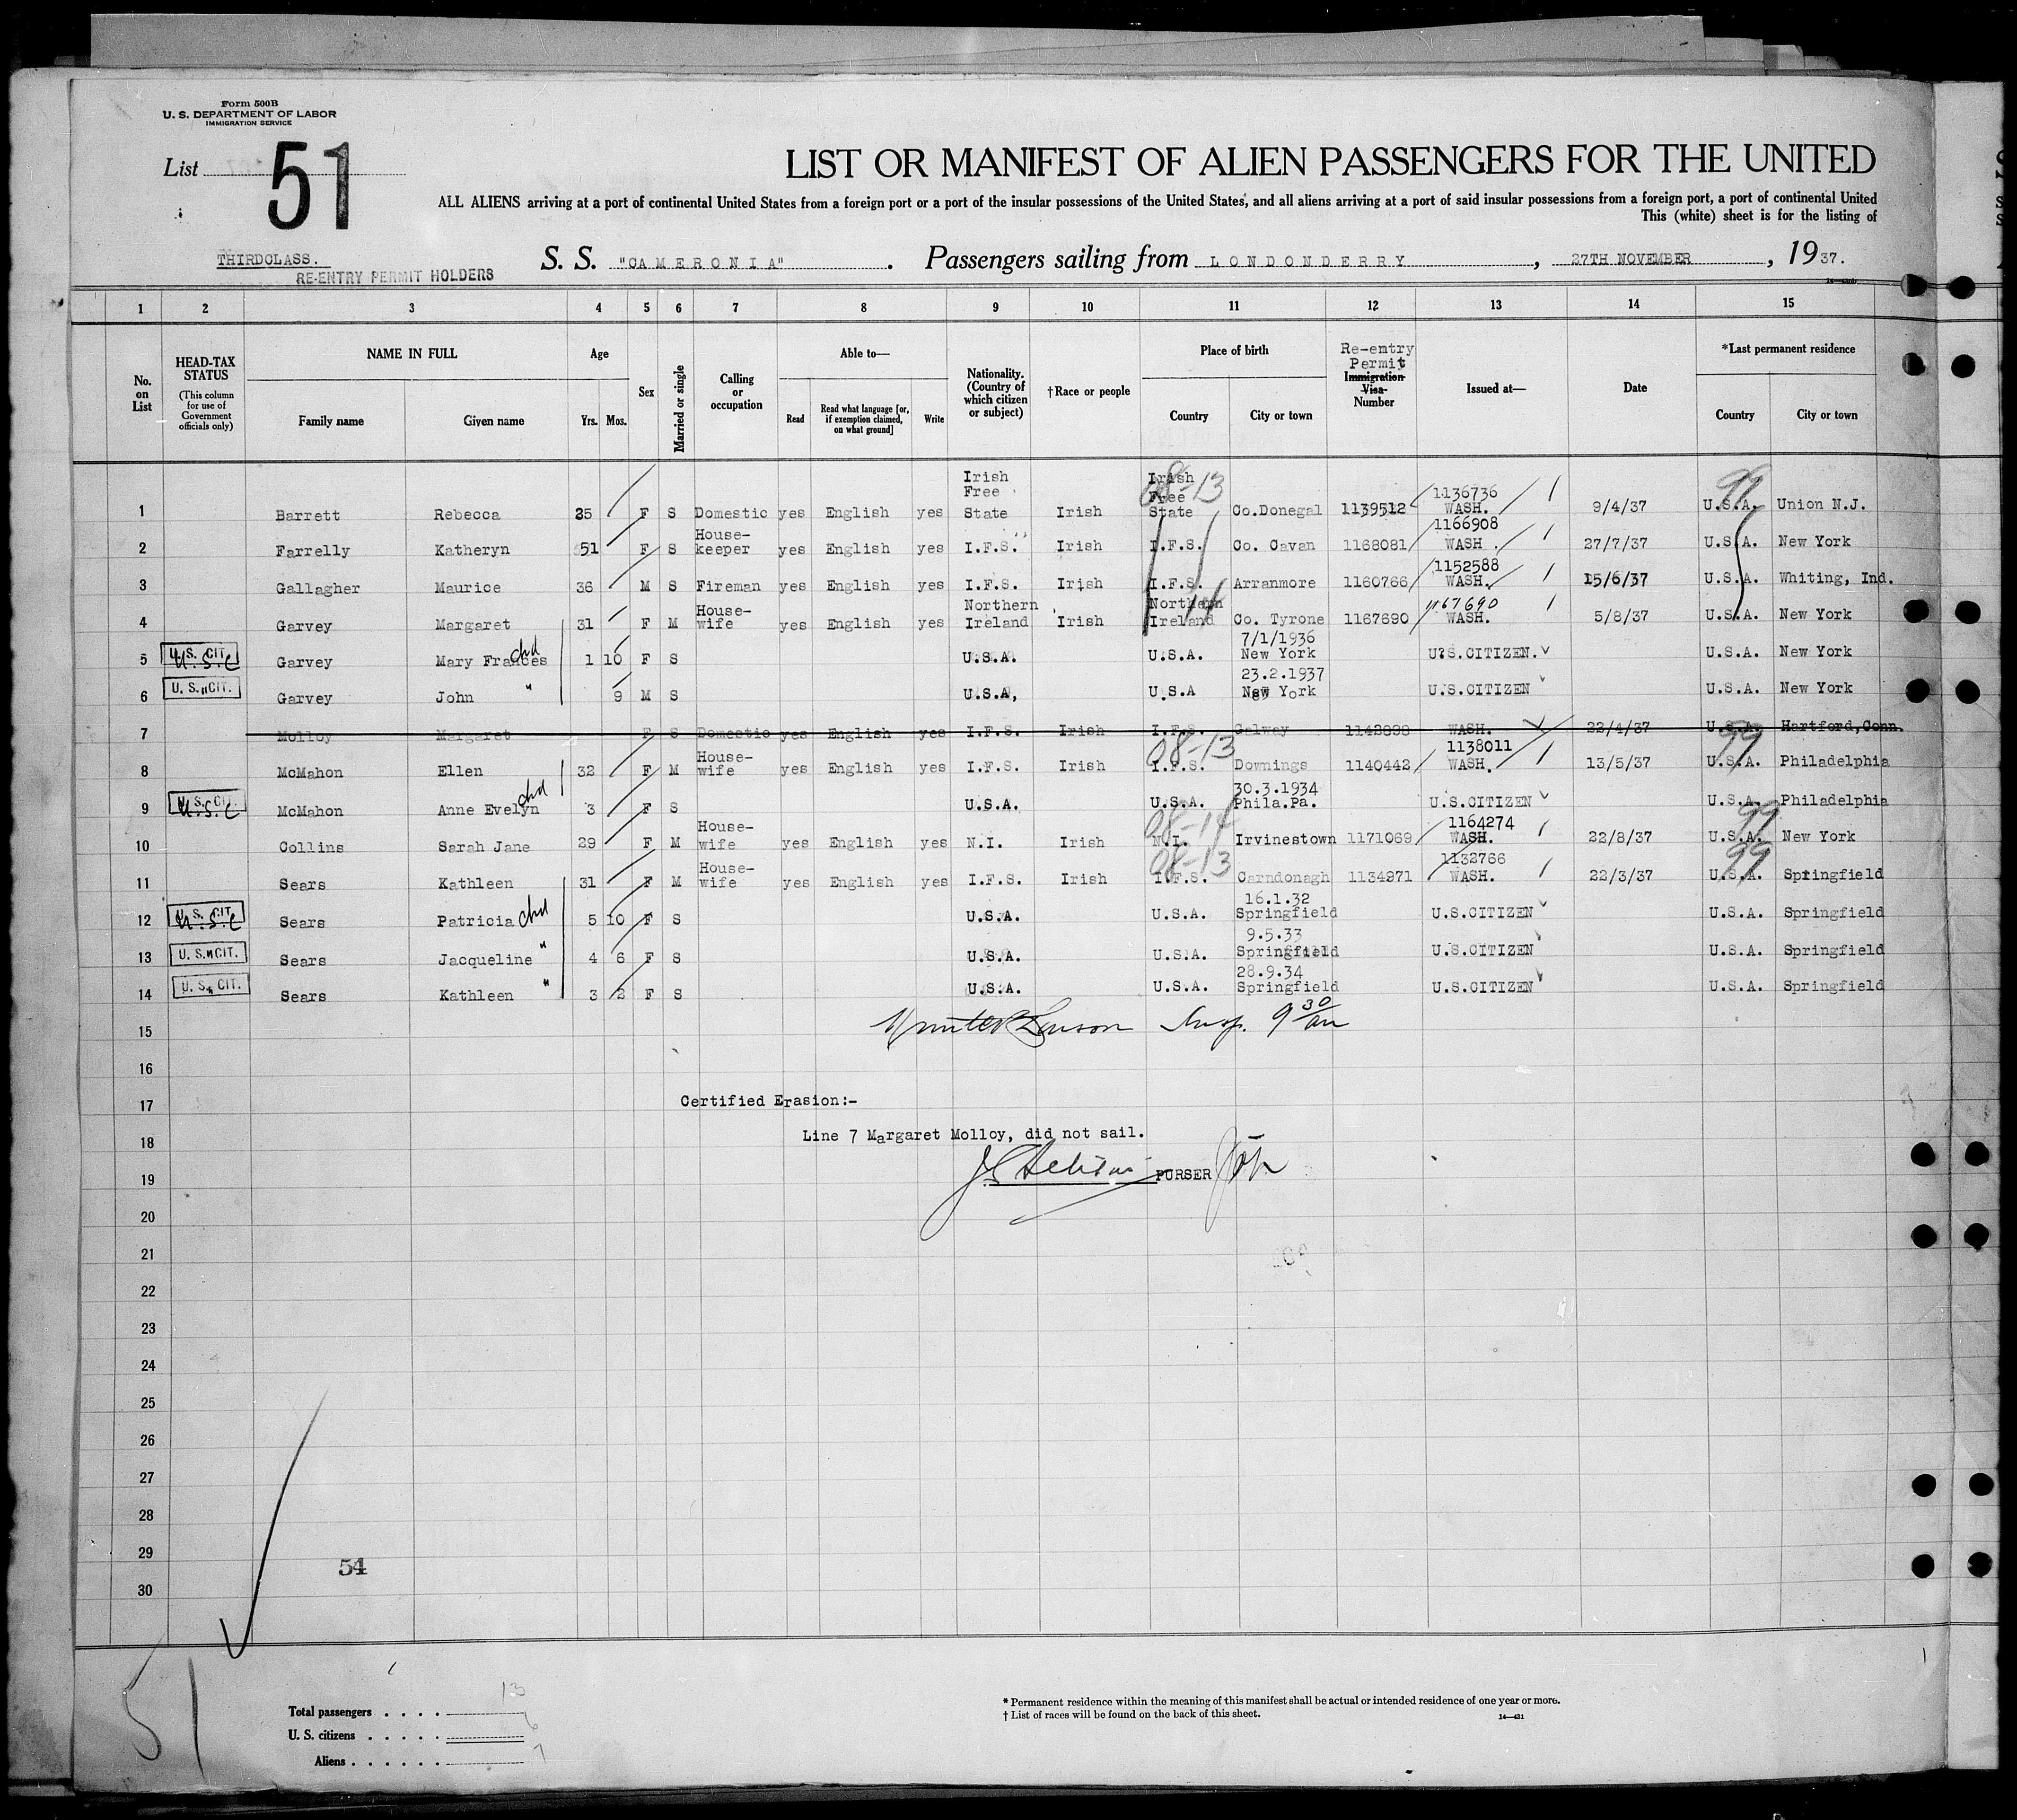 Form 500B
U. S. DEPARTMENT OF LABOR
IMMIGRATION SERVICE
List 51
LIST OR MANIFEST OF ALIEN PASSENGERS FOR THE UNITED
ALL ALIENS arriving at a port of continental United States from a foreign port or a port of the insular possessions of the United States, and all aliens arriving at a port of said insular possessions from a foreign port, a port of continental United
This (white) sheet is for the listing of
THIRDCLASS.
RE-ENTRY PERMIT HOLDERS
S. S. "CAMERONIA" . Passengers sailing from LONDONDERRY , 27TH NOVEMBER , 1937.
1 2 3 4 5 6 7 8 9 10 11 12 13 14 15
No. on List
HEAD-TAX STATUS (This column for use of Government officials only)
NAME IN FULL Family name Given name
Age Yrs. Mos.
Sex
Married or single
Calling or occupation
Able to— Read Read what language [or, if exemption claimed, on what ground] Write
Nationality. (Country of which citizen or subject)
†Race or people
Place of birth Country City or town
Re-entry Permit Immigration Visa Number
Issued at—
Date
*Last permanent residence Country City or town
1 Barrett Rebecca 25 F S Domestic yes English yes Irish Free State Irish Irish Free State 08-13 Co.Donegal 1139512 1136736 WASH. 9/4/37 99 U.S.A. Union N.J.
2 Farrelly Katheryn 51 F S House-keeper yes English yes I.F.S. Irish I.F.S. Co. Cavan 1168081 1166908 WASH. 27/7/37 U.S.A. New York
3 Gallagher Maurice 36 M S Fireman yes English yes I.F.S. Irish I.F.S. Arranmore 1160766 1152588 WASH. 15/6/37 U.S.A. Whiting, Ind.
4 Garvey Margaret 31 F M House-wife yes English yes Northern Ireland Irish Northern Ireland 14 Co. Tyrone 1167690 1167690 WASH. 5/8/37 U.S.A. New York
5 U.S. CIT. U.S.C Garvey Mary Frances chd 1 10 F S U.S.A. U.S.A. 7/1/1936 New York U.S.CITIZEN. U.S.A. New York
6 U.S. CIT. " Garvey John " 9 M S U.S.A, U.S.A 23.2.1937 New York U.S.CITIZEN U.S.A. New York
7 Molloy Margaret F S Domestic yes English yes I.F.S. Irish I.F.S. Galway WASH. 22/4/37 U.S.A. Hartford,Conn.
8 McMahon Ellen 32 F M House-wife yes English yes I.F.S. Irish 08-13 I.F.S. Downings 1140442 1138011 WASH. 13/5/37 99 U.S.A. Philadelphia
9 U.S. CIT. U.S.C McMahon Anne Evelyn chd 3 F S U.S.A. U.S.A. 30.3.1934 Phila.Pa. U.S.CITIZEN U.S.A. Philadelphia
10 Collins Sarah Jane 29 F M House-wife yes English yes N.I. Irish 08-14 N.I. Irvinestown 1171069 1164274 WASH. 22/8/37 99 U.S.A. New York
11 Sears Kathleen 31 F M House-wife yes English yes I.F.S. Irish 08-13 I.F.S. Carndonagh 1134971 1132766 WASH. 22/3/37 99 U.S.A. Springfield
12 U.S. CIT. U.S.C Sears Patricia chd 5 10 F S U.S.A. U.S.A. 16.1.32 Springfield U.S.CITIZEN U.S.A. Springfield
13 U.S. CIT. " Sears Jacqueline " 4 6 F S U.S.A. U.S.A. 9.5.33 Springfield U.S.CITIZEN U.S.A. Springfield
14 U.S. CIT. " Sears Kathleen " 3 2 F S U.S.A. U.S.A. 28.9.34 Springfield U.S.CITIZEN U.S.A. Springfield
15 Insp. 9 30 am
16
17 Certified Erasion:-
18 Line 7 Margaret Molloy, did not sail.
19 PURSER
20
21
22
23
24
25
26
27
28
29 54
30
51
Total passengers . . . . 13
U. S. citizens . . . . . 6
Aliens . . . . . . 7
* Permanent residence within the meaning of this manifest shall be actual or intended residence of one year or more.
† List of races will be found on the back of this sheet.
14—431